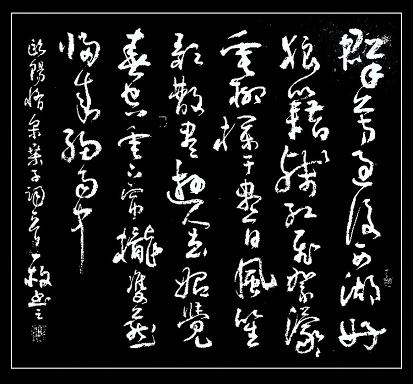 群芳過後西湖好
狼籍殘紅飛絮濛々
垂柳欄干盡日風笙
歌散盡遊人去始覺
春空垂下帘攏雙燕
歸來細雨中
歐陽脩采桑子詞